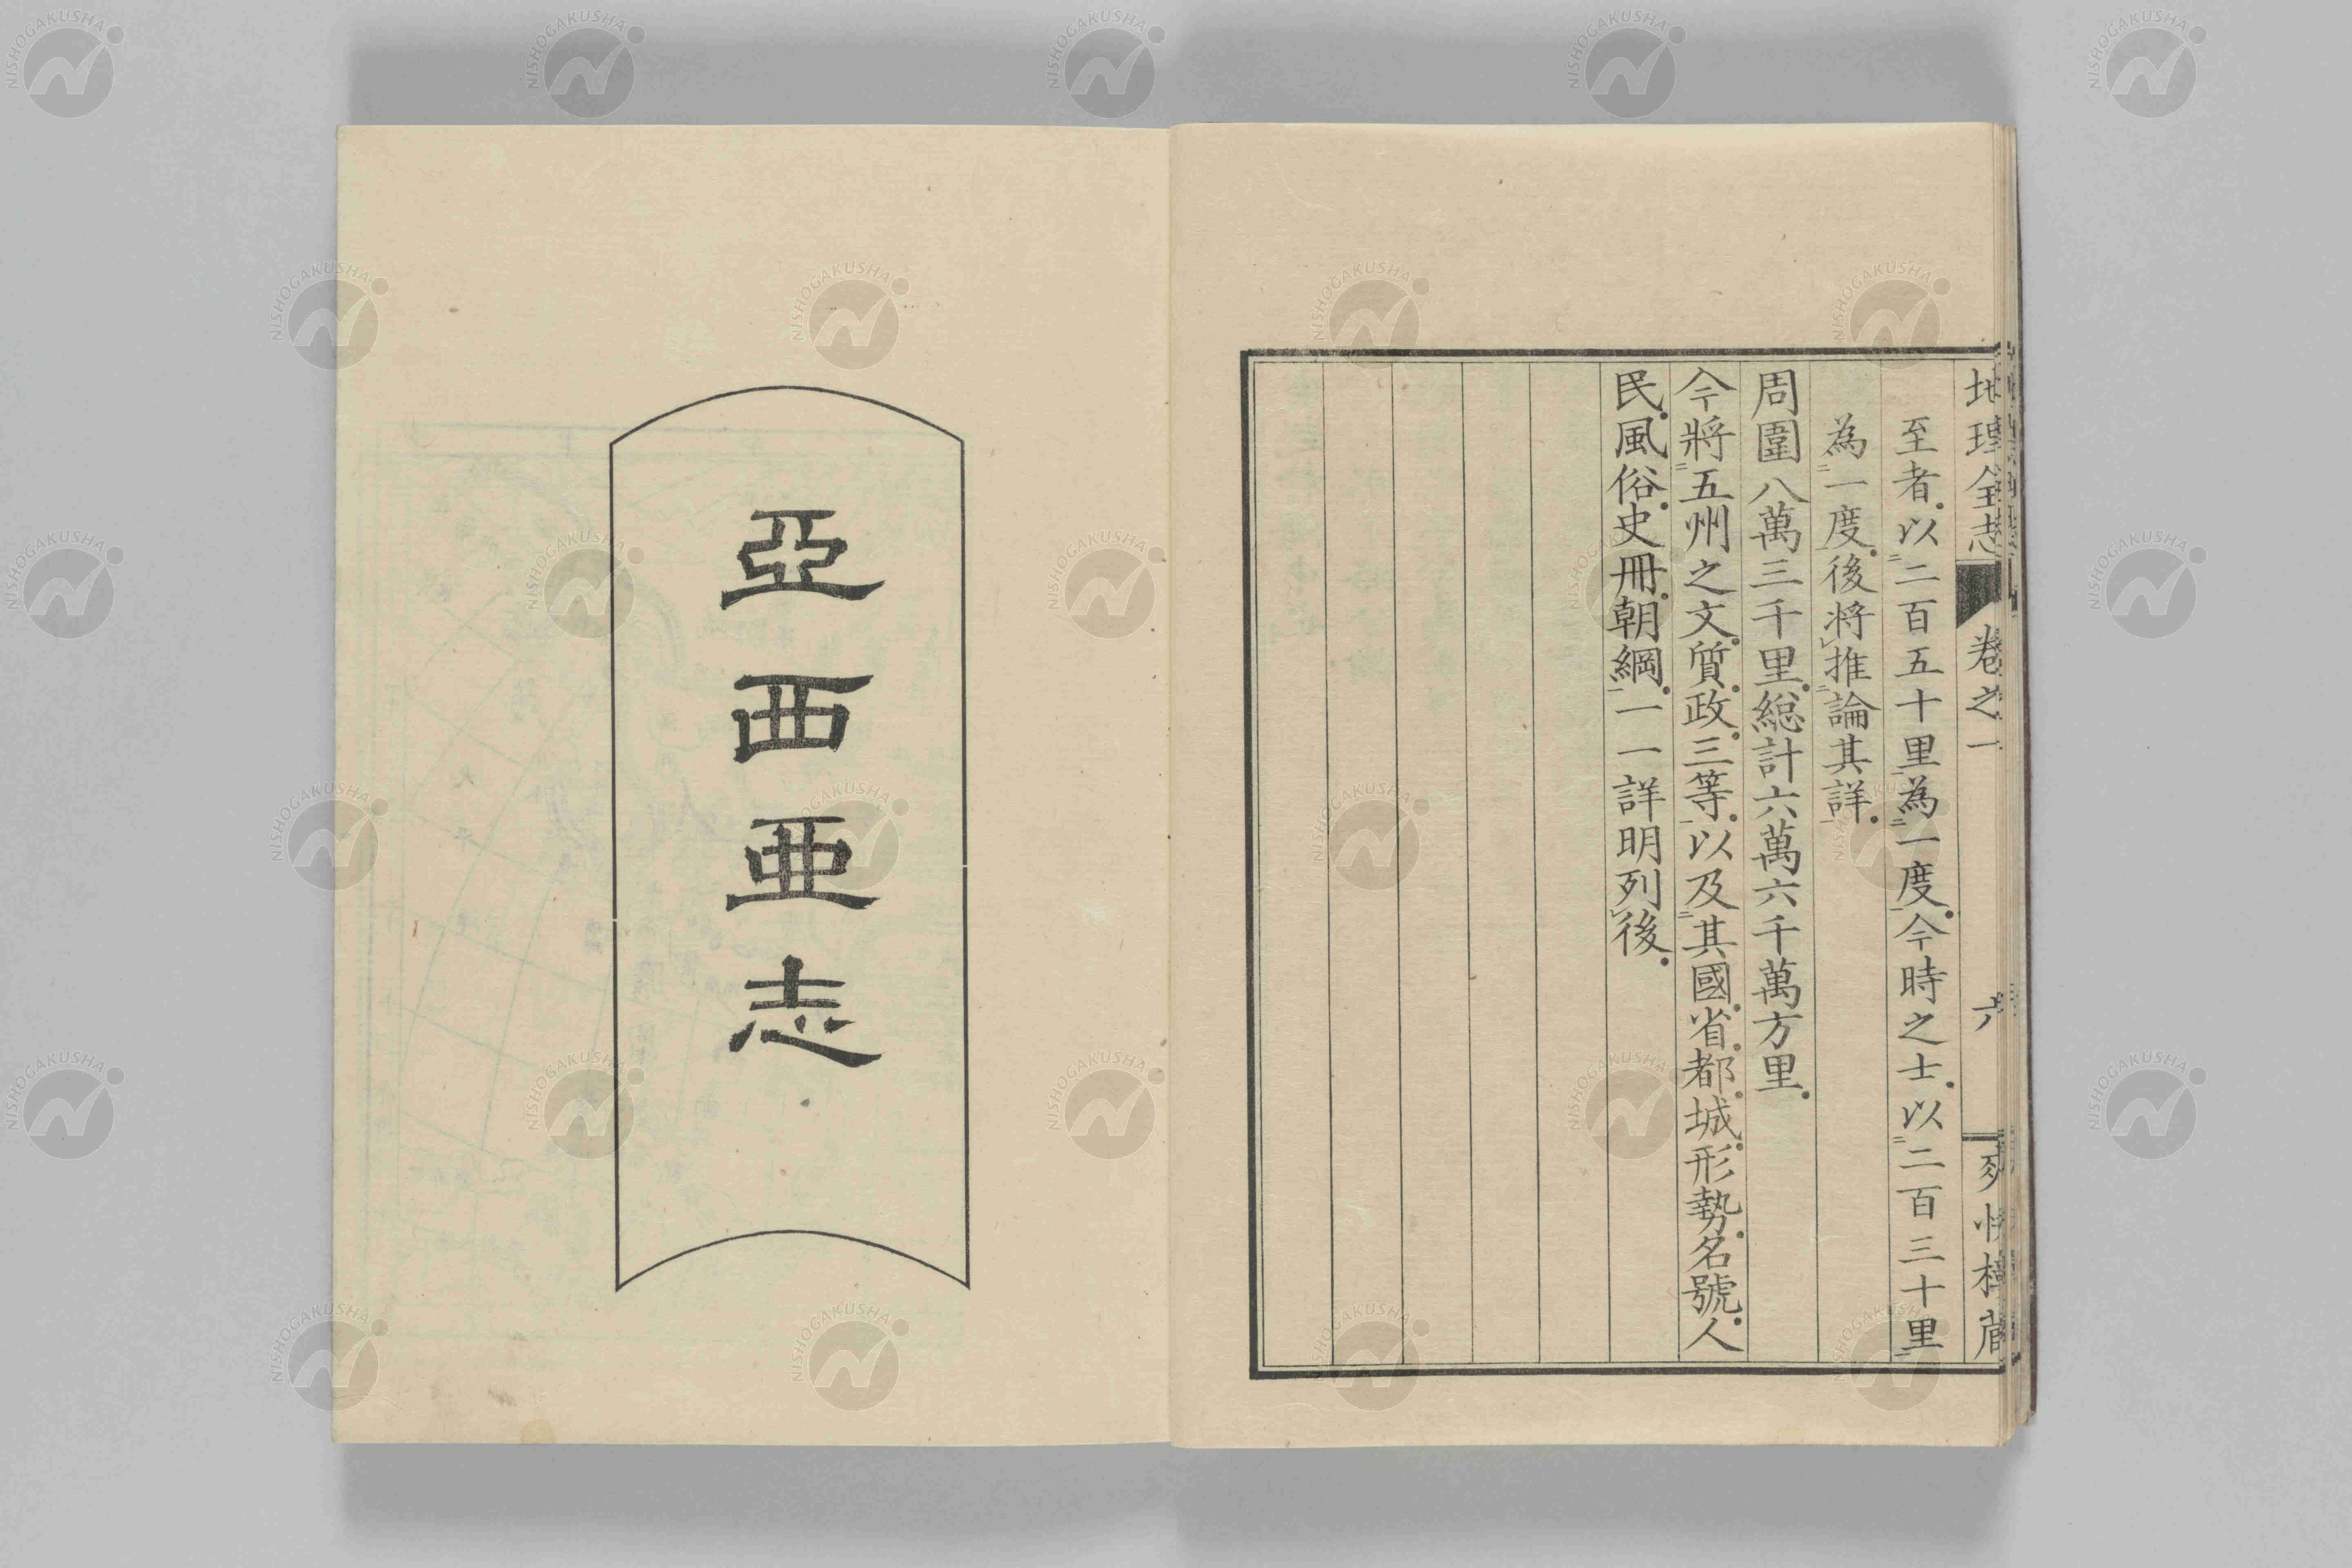 地理全志 卷之一 六
至者以二百五十里為一度今時之士以二百三十里
為一度後將推論其詳
周圍八萬三千里總計六萬六千萬方里
今將五州之文質政三等以及其國省都城形勢名號人
民風俗史冊朝綱一一詳明列後
亞西亜志
NISHOGAKUSHA